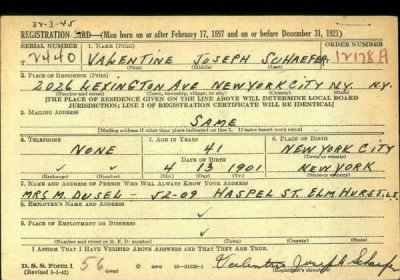 34-3-45
REGISTRATION CARD—(Men born on or after February 17, 1897 and on or before December 31, 1921)
SERIAL NUMBER 1. NAME (Print) ORDER NUMBER
V440 VALENTINE JOSEPH SCHAEFER 12178A
(First) (Middle) (Last)
2. PLACE OF RESIDENCE (Print)
2026 LEXINGTON AVE NEW YORK CITY N.Y. N.Y.
(Number and street) (Town, township, village, or city) (County) (State)
[THE PLACE OF RESIDENCE GIVEN ON THE LINE ABOVE WILL DETERMINE LOCAL BOARD
JURISDICTION; LINE 2 OF REGISTRATION CERTIFICATE WILL BE IDENTICAL]
3. MAILING ADDRESS
SAME
[Mailing address if other than place indicated on line 2. If same insert word same]
4. TELEPHONE 5. AGE IN YEARS 6. PLACE OF BIRTH
NONE 41 NEW YORK CITY
DATE OF BIRTH (Town or county)
4 13 1901 NEW YORK
(Exchange) (Number) (Mo.) (Day) (Yr.) (State or country)
7. NAME AND ADDRESS OF PERSON WHO WILL ALWAYS KNOW YOUR ADDRESS
MRS M. DUSEL - 52-09 HASPEL ST. ELMHURST, L.I.
8. EMPLOYER'S NAME AND ADDRESS
9. PLACE OF EMPLOYMENT OR BUSINESS
(Number and street or R. F. D. number) (Town) (County) (State)
I AFFIRM THAT I HAVE VERIFIED ABOVE ANSWERS AND THAT THEY ARE TRUE.
D. S. S. Form 1 56 Valentine Joseph Schaefer
(Revised 4-1-42) (over) (Registrant's signature)